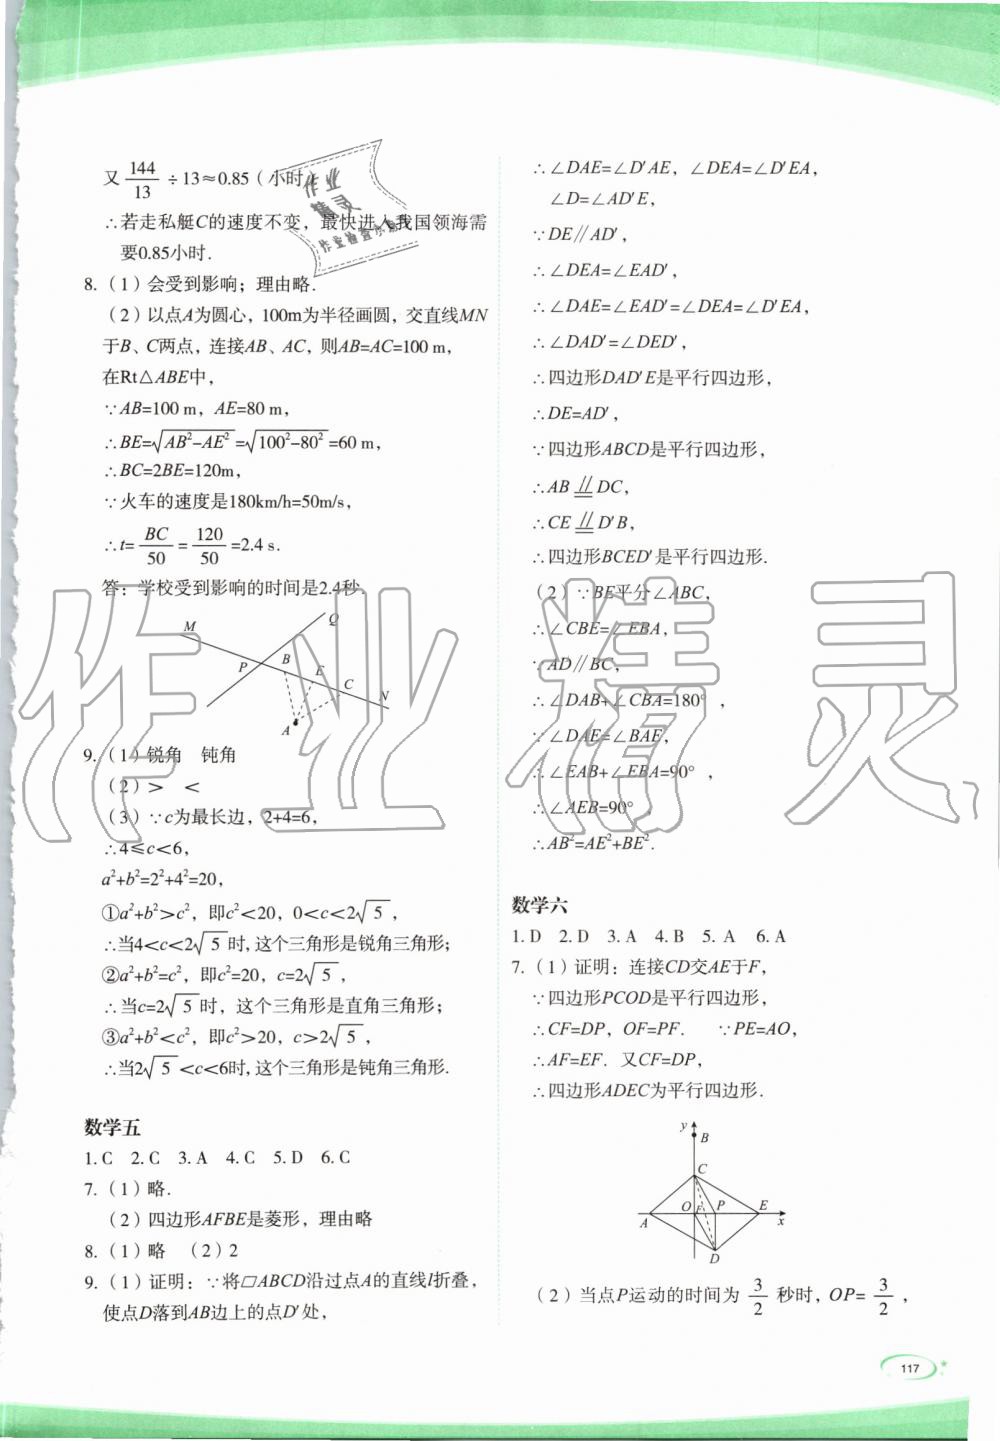 又144/13÷13≈0.85（小时）
∴若走私艇C的速度不变，最快进入我国领海需
要0.85小时.
8.（1）会受到影响；理由略.
（2）以点A为圆心，100m为半径画圆，交直线MN
于B、C两点，连接AB、AC，则AB=AC=100 m，
在Rt△ABE中，
∵AB=100 m，AE=80 m，
∴BE=√(AB²−AE²)=√(100²−80²)=60 m，
∴BC=2BE=120m，
∵火车的速度是180km/h=50m/s，
∴t=BC/50=120/50=2.4 s.
答：学校受到影响的时间是2.4秒.
M
Q
P
B
E
C
N
A
9.（1）锐角　钝角
（2）>　<
（3）∵c为最长边，2+4=6，
∴4≤c<6，
a²+b²=2²+4²=20，
①a²+b²>c²，即c²<20，0<c<2√5，
∴当4<c<2√5时，这个三角形是锐角三角形；
②a²+b²=c²，即c²=20，c=2√5，
∴当c=2√5时，这个三角形是直角三角形；
③a²+b²<c²，即c²>20，c>2√5，
∴当2√5<c<6时，这个三角形是钝角三角形.
数学五
1.C 2.C 3.A 4.C 5.D 6.C
7.（1）略.
（2）四边形AFBE是菱形，理由略
8.（1）略　（2）2
9.（1）证明：∵将▱ABCD沿过点A的直线l折叠，
使点D落到AB边上的点D′处，
∴∠DAE=∠D′AE，∠DEA=∠D′EA，
∠D=∠AD′E，
∵DE∥AD′，
∴∠DEA=∠EAD′，
∴∠DAE=∠EAD′=∠DEA=∠D′EA，
∴∠DAD′=∠DED′，
∴四边形DAD′E是平行四边形，
∴DE=AD′，
∵四边形ABCD是平行四边形，
∴AB ⫽ DC，
∴CE ⫽ D′B，
∴四边形BCED′是平行四边形.
（2）∵BE平分∠ABC，
∴∠CBE=∠EBA，
∵AD∥BC，
∴∠DAB+∠CBA=180°，
∵∠DAE=∠BAE，
∴∠EAB+∠EBA=90°，
∴∠AEB=90°，
∴AB²=AE²+BE².
数学六
1.D 2.D 3.A 4.B 5.A 6.A
7.（1）证明：连接CD交AE于F，
∵四边形PCOD是平行四边形，
∴CF=DP，OF=PF.　∵PE=AO，
∴AF=EF.又CF=DP，
∴四边形ADEC为平行四边形.
y
B
C
O
F
P
E
A
x
D
（2）当点P运动的时间为3/2秒时，OP=3/2，
117
作业精灵
作业
精灵